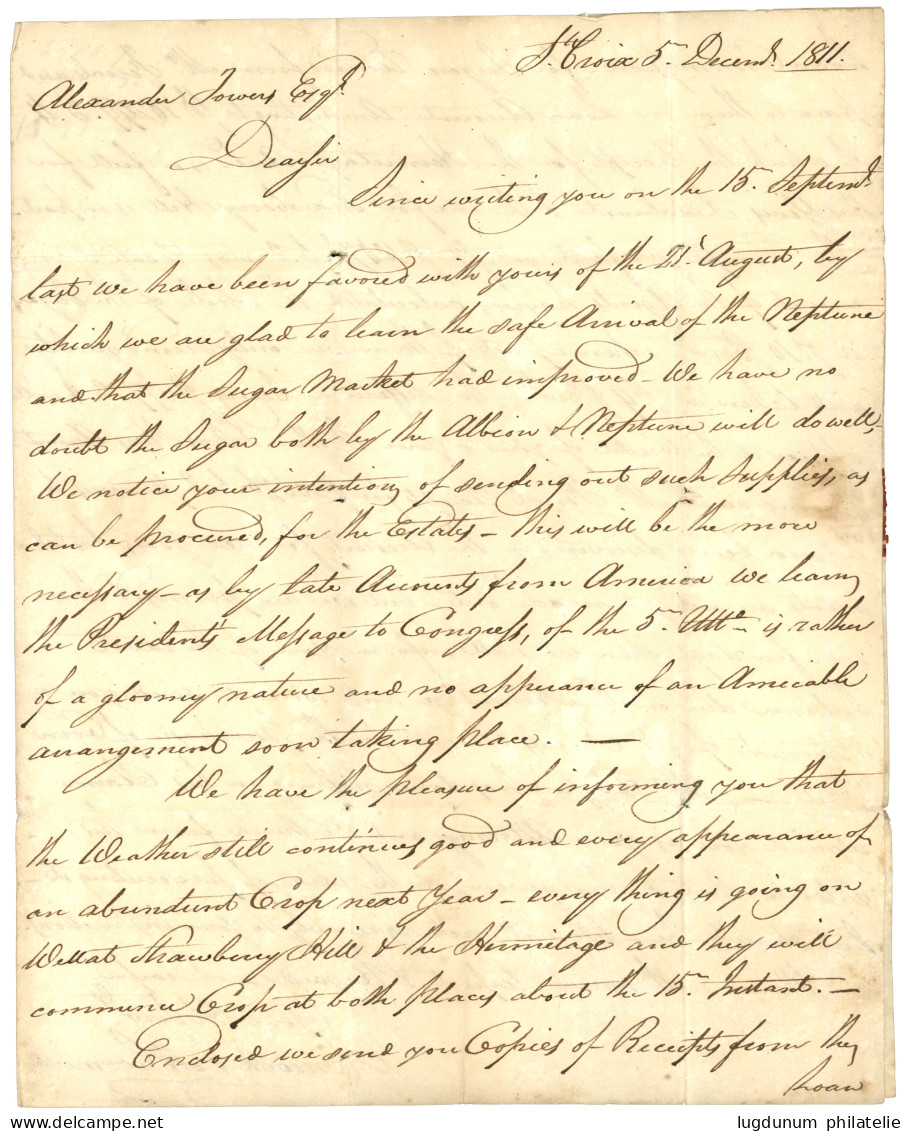 St. Croix 5th Decemr. 1811.
Alexander Towers Esqr.
Dear Sir
Since writing you on the 15th Septemr.
last we have been favored with yours of the 21st August, by
which we are glad to learn the safe Arrival of the Neptune
and that the Sugar Market had improved - We have no
doubt the Sugar both by the Albion & Neptune will do well,
We notice your intention, of sending out such Supplies, as
can be procured, for the Estates - this will be the more
necessary - as by late Accounts from America we learn,
the President's Message to Congress, of the 5th Ulto. is rather
of a gloomy nature and no apperance of an Amicable
arrangement soon taking place. —
We have the pleasure of informing you that
the Weather still continues good and every appearance of
an abundunt Crop next Year - every thing is going on
Well at Strawberry Hill & the Hermitage and they will
commence Crop at both places about the 15th Instant. —
Enclosed we send you Copies of Receipts from the
Loan
delcampe.net
lugdunum philatelie